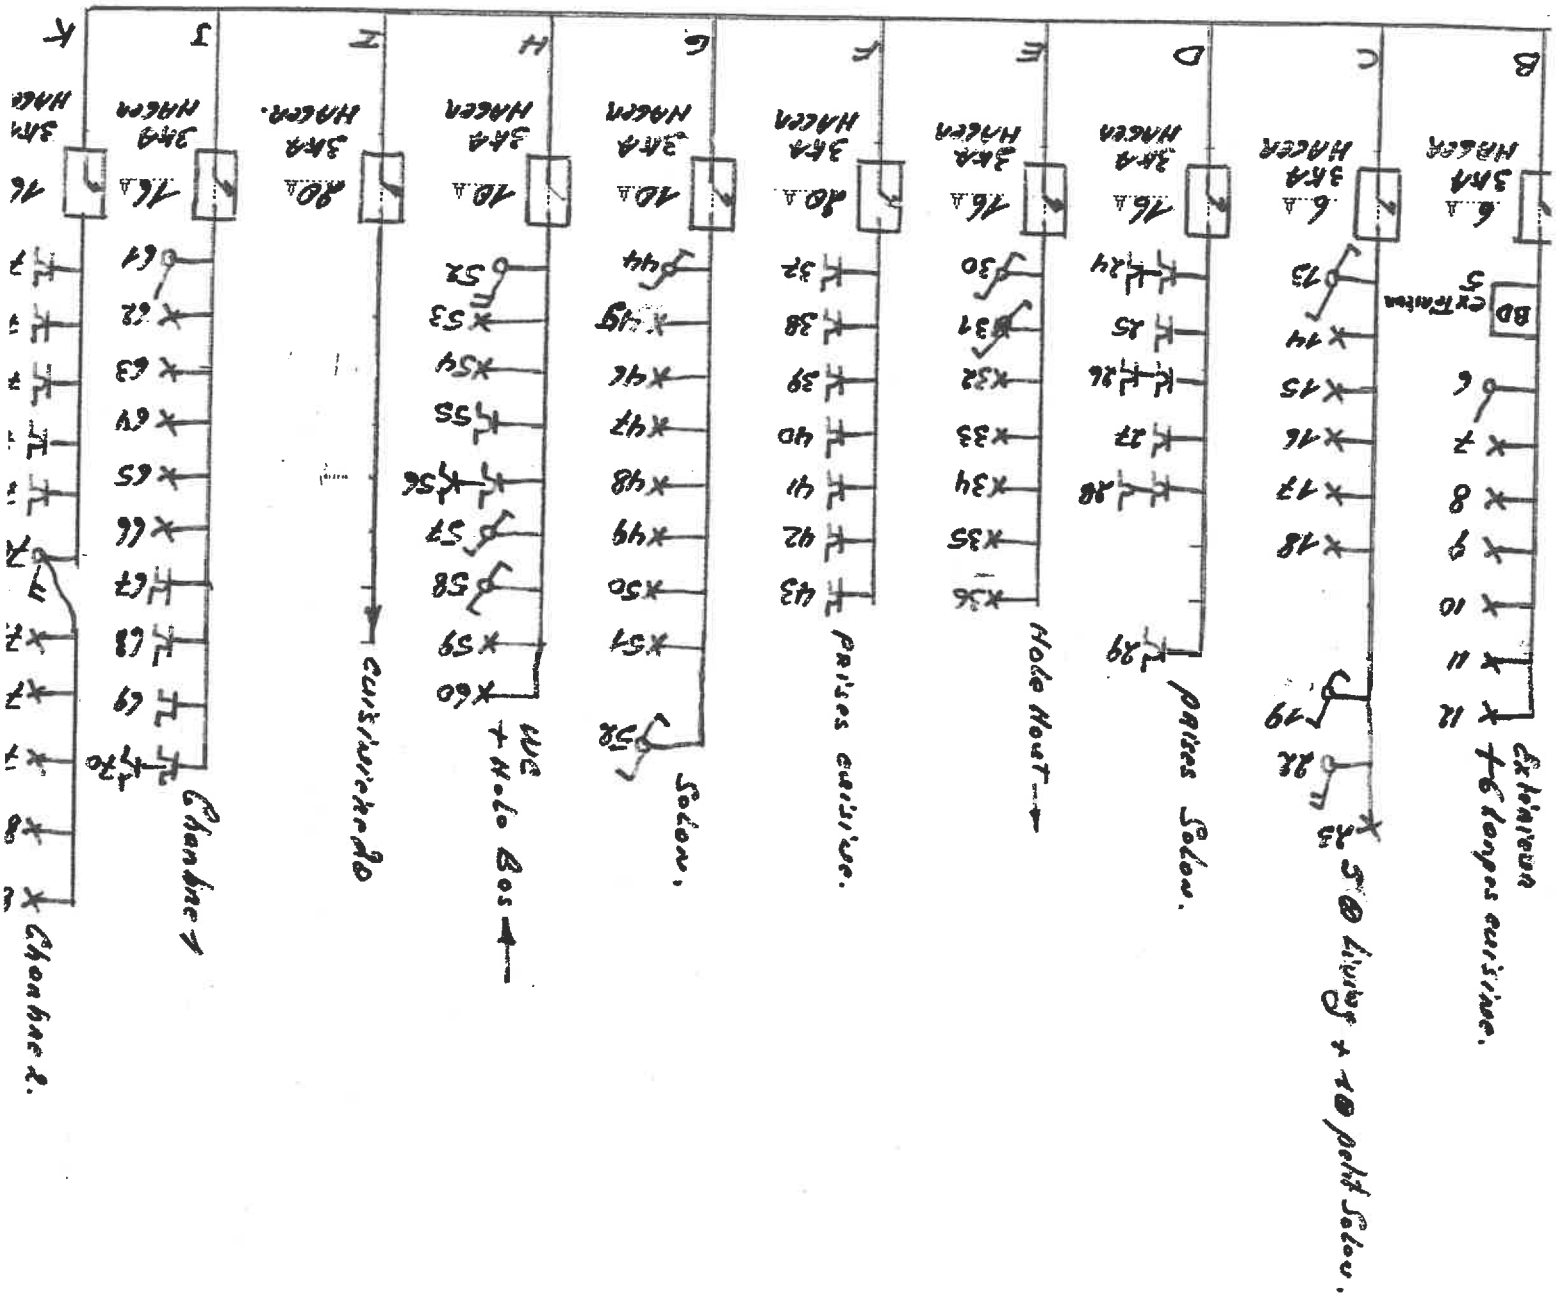 B
6 A
3KA
HAGER
BD
5
extérieur
6
7
8
9
10
11
12
Extérieur
+ 6 lampes cuisine.
C
6 A
3KA
HAGER
13
14
15
16
17
18
19
22
23
living + 1 petit Salon.
D
16 A
3KA
HAGER
24
25
26
27
28
29
PRises Salon.
E
16 A
3KA
HAGER
30
31
32
33
34
35
36
Hole Haut
F
20 A
3KA
HAGER
37
38
39
40
41
42
43
PRises cuisine.
G
10 A
3KA
HAGER
44
45
46
47
48
49
50
51
52
Salon.
H
10 A
3KA
HAGER
52
53
54
55
56
57
58
59
60
WC
+ Hole Bas
I
20 A
3KA
HAGER.
J
16 A
3KA
HAGER
61
62
63
64
65
66
67
68
69
70
Chambre 1
K
16
HAGE
Chambre 2.